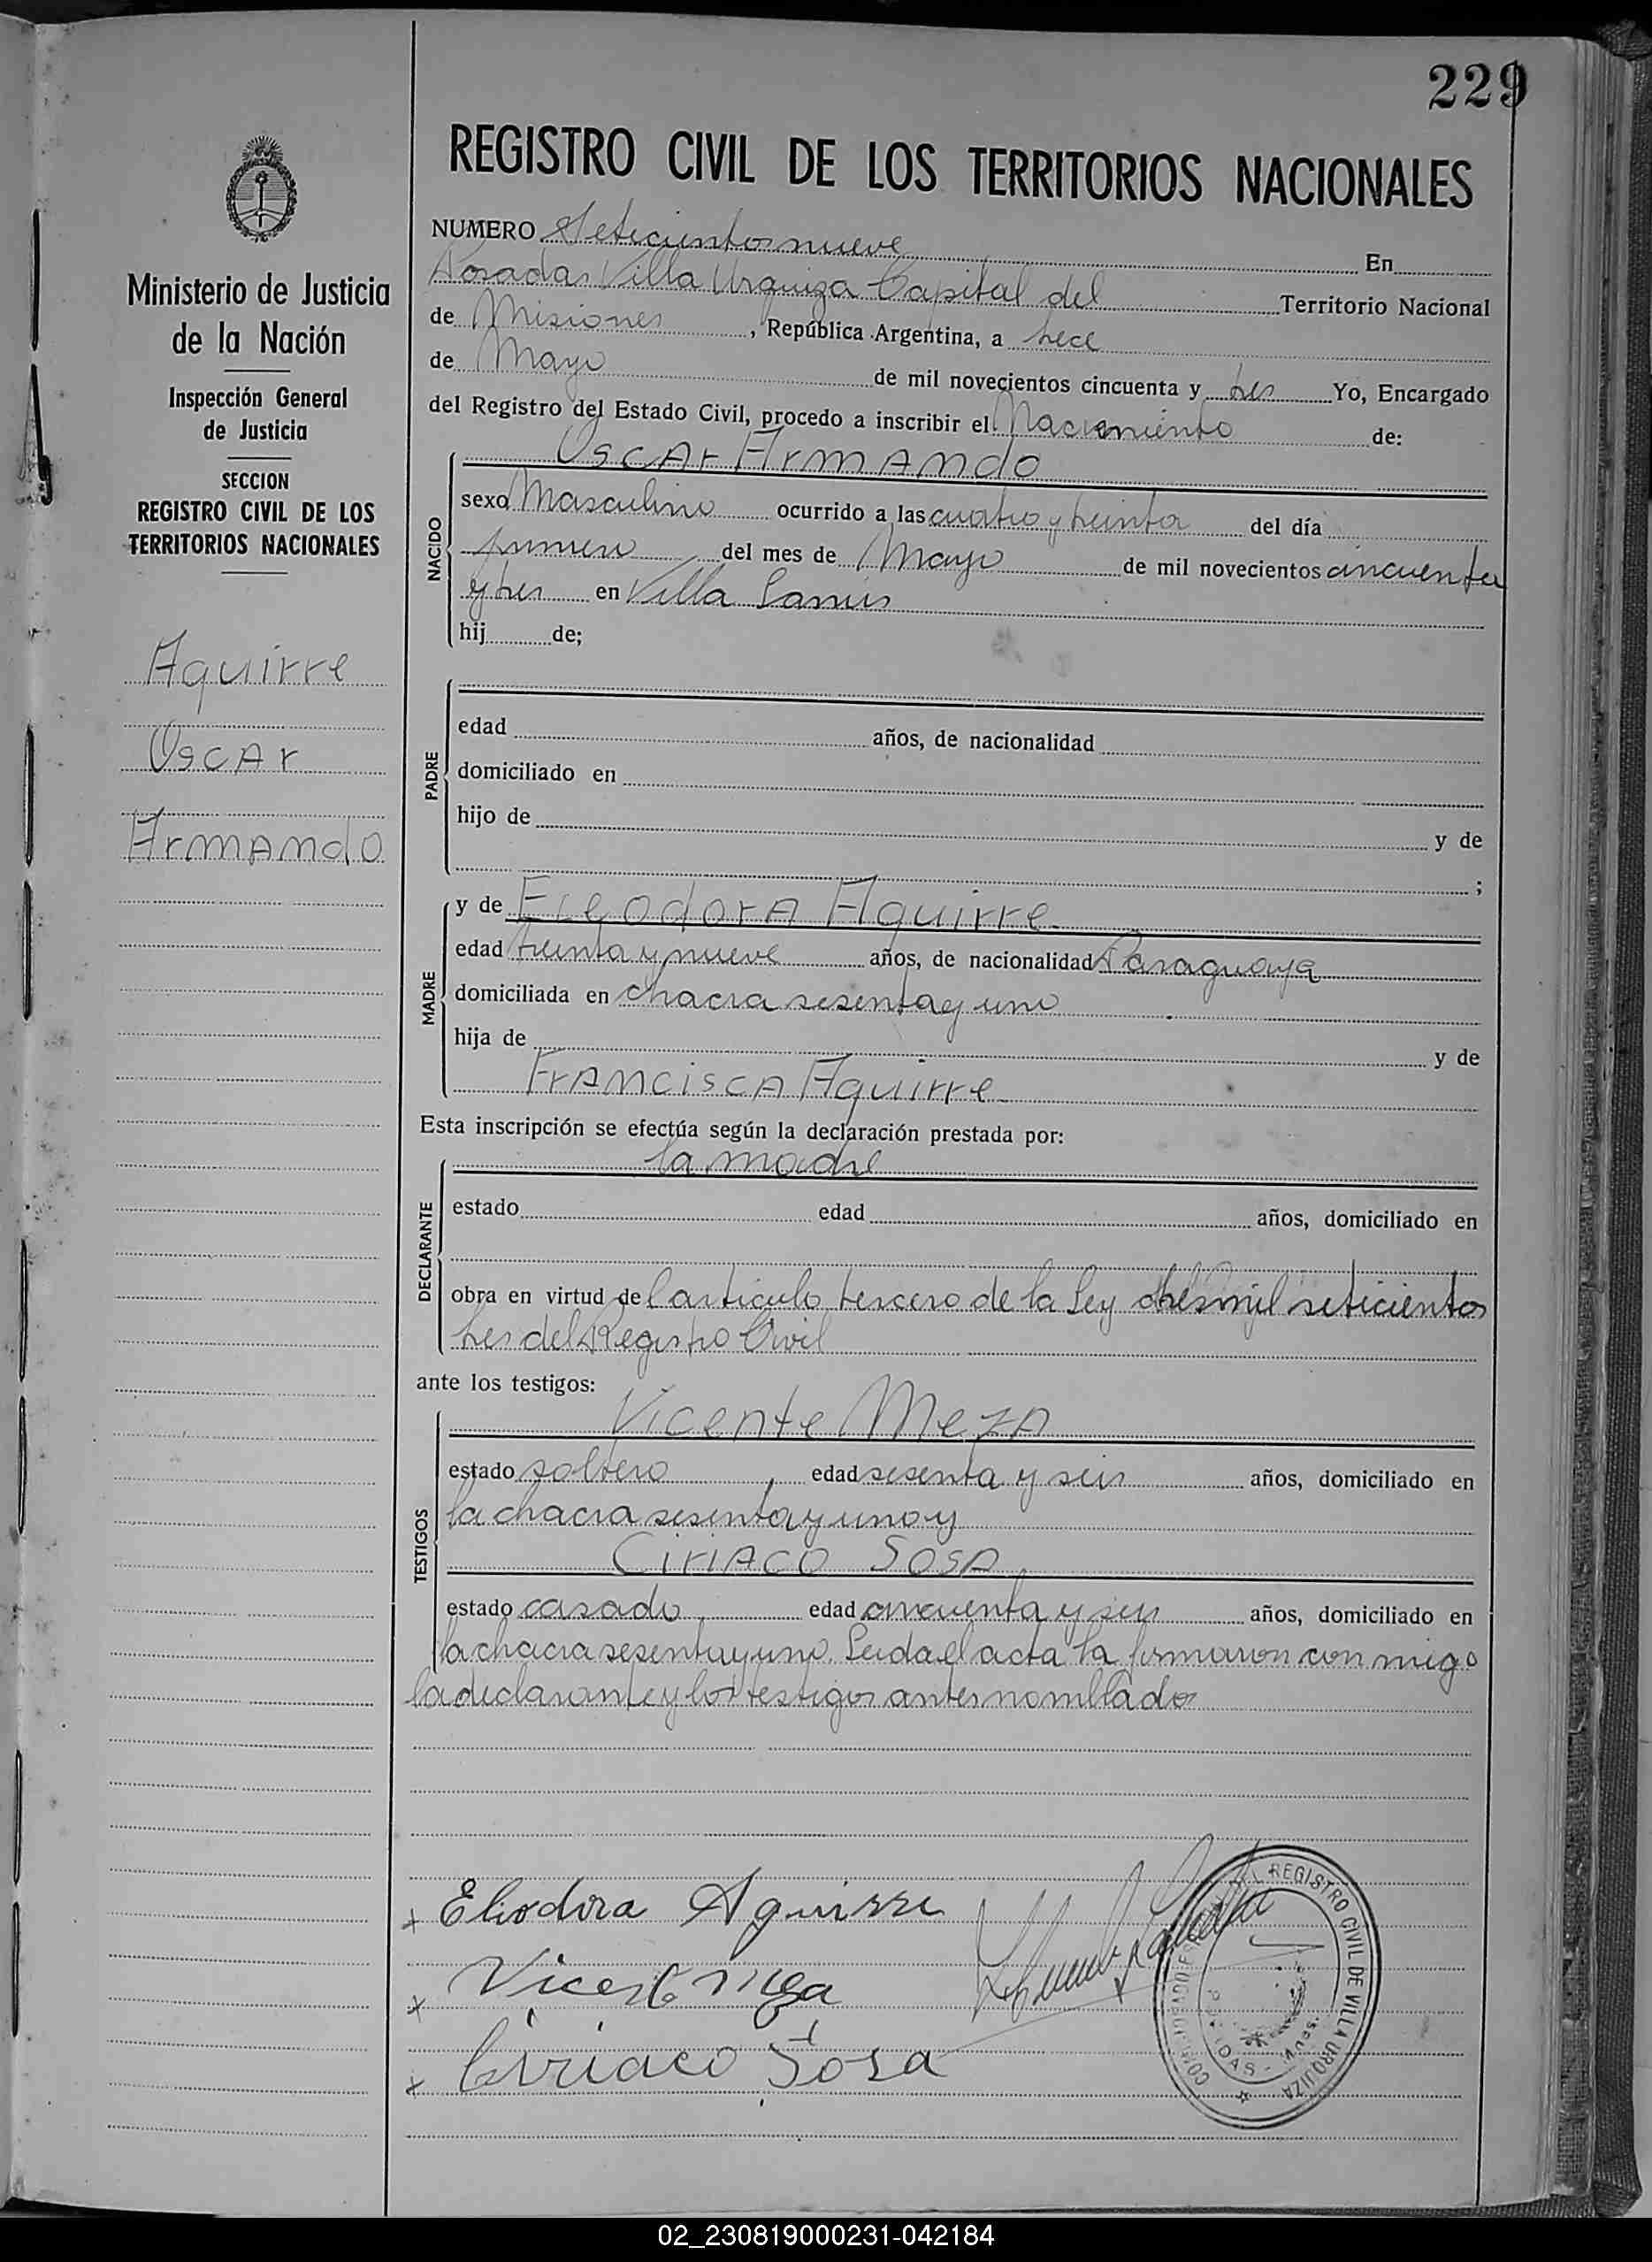 229
REGISTRO CIVIL DE LOS TERRITORIOS NACIONALES
Ministerio de Justicia
de la Nación
Inspección General
de Justicia
SECCION
REGISTRO CIVIL DE LOS
TERRITORIOS NACIONALES
Aguirre
Oscar
Armando
NUMERO Seteciento nueve En
Posadas Villa Urquiza Capital del Territorio Nacional
de Misiones, República Argentina, a trece
de Mayo de mil novecientos cincuenta y tres Yo, Encargado
del Registro del Estado Civil, procedo a inscribir el Nacimiento de:
NACIDO
Oscar Armando
sexo Masculino ocurrido a las cuatro y treinta del día
primero del mes de Mayo de mil novecientos cincuenta
y tres en Villa Lanús
hij de;
PADRE
edad años, de nacionalidad
domiciliado en
hijo de y de
;
MADRE
y de Eleodora Aguirre
edad treinta y nueve años, de nacionalidad Paraguaya
domiciliada en chacra sesenta y uno
hija de y de
Francisca Aguirre
Esta inscripción se efectúa según la declaración prestada por:
DECLARANTE
la madre
estado edad años, domiciliado en
obra en virtud del articulo tercero de la Ley tres mil seticientos
tres del Registro Civil
ante los testigos:
TESTIGOS
Vicente Meza
estado soltero, edad sesenta y seis años, domiciliado en
la chacra sesenta y uno y
Ciriaco Sosa
estado casado, edad cincuenta y seis años, domiciliado en
la chacra sesenta y uno. Leida el acta la firmaron con migo
la declarante y los testigos antes nombrados
x Eliodora Aguirre
x Vicente Meza
x Ciriaco Sosa
REGISTRO CIVIL DE VILLA URQUIZA
02_230819000231-042184